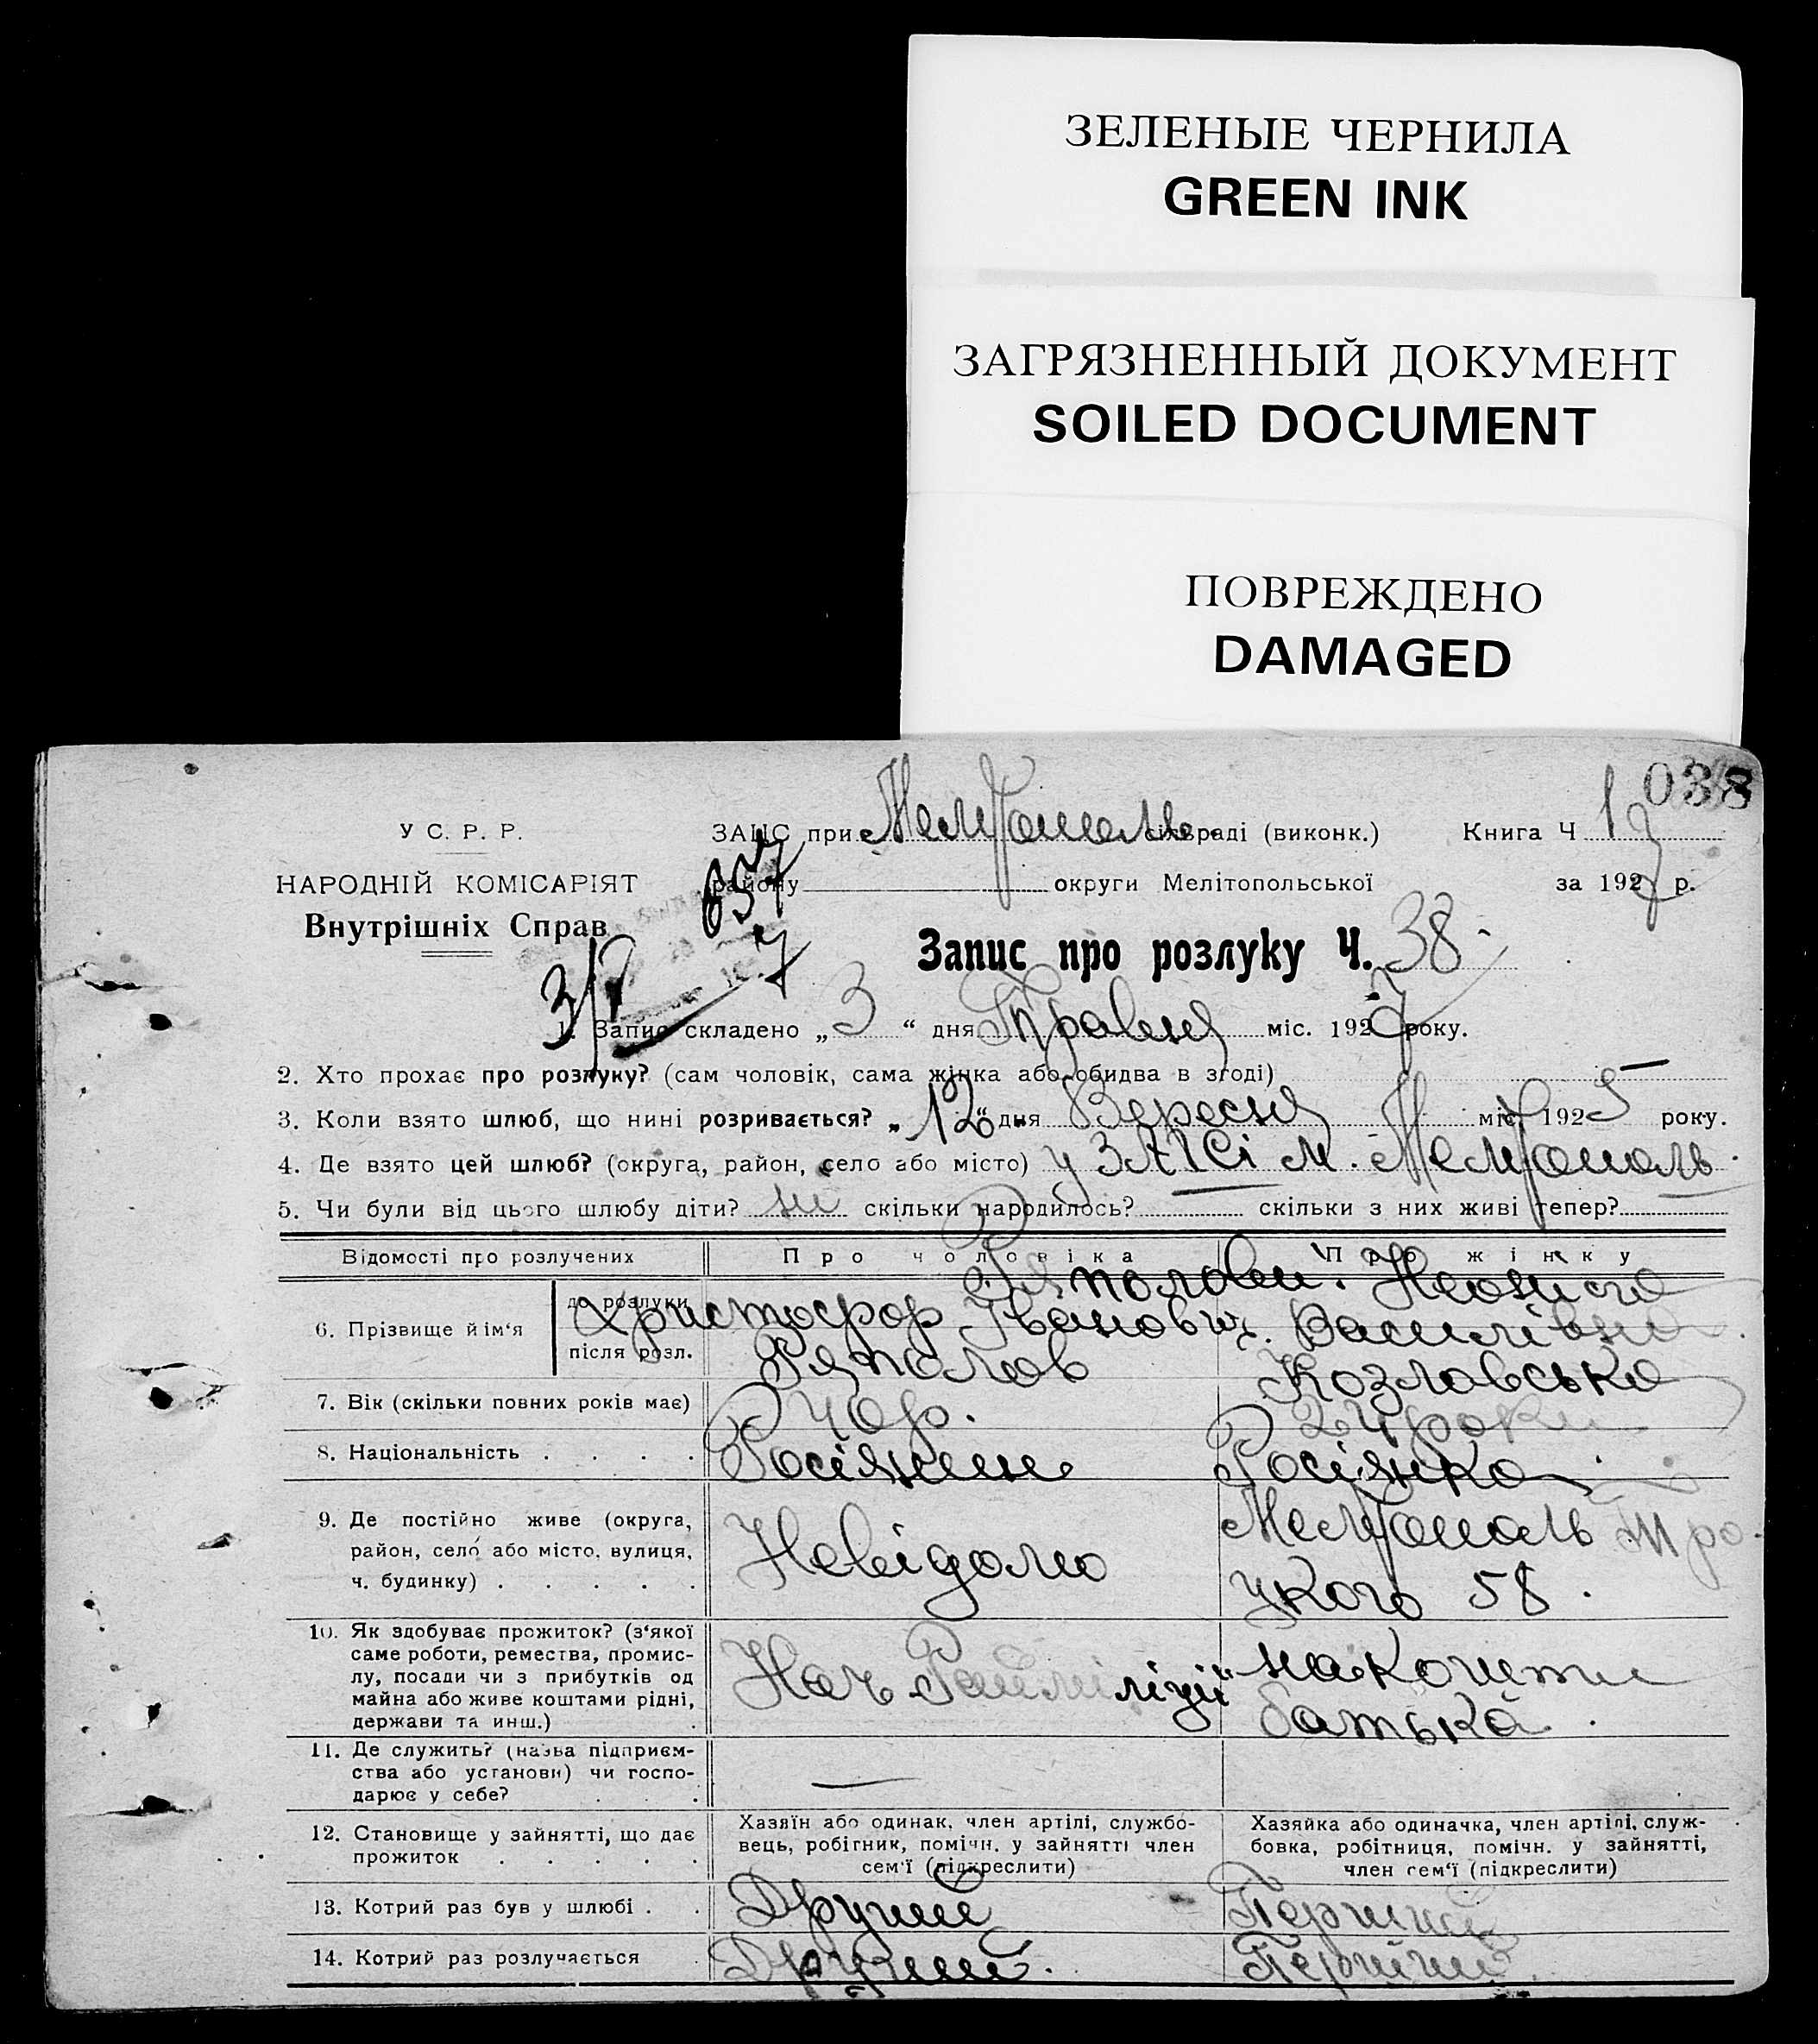 ЗЕЛЕНЫЕ ЧЕРНИЛА
GREEN INK
ЗАГРЯЗНЕННЫЙ ДОКУМЕНТ
SOILED DOCUMENT
ПОВРЕЖДЕНО
DAMAGED
038
У С. Р. Р.
НАРОДНІЙ КОМІСАРІЯТ
Внутрішніх Справ
ЗАГС при Мелітополь сільраді (виконк.) Книга Ч 1
району округи Мелітопольської за 1927 р.
657
Запис про розлуку Ч. 38
1. Запис складено „ 3 “ дня Травня міс. 1927 року.
2. Хто прохає про розлуку? (сам чоловік, сама жінка або обидва в згоді)
3. Коли взято шлюб, що нині розривається? „ 12 “ дня Вересня міс. 1925 року.
4. Де взято цей шлюб? (округа, район, село або місто) у ЗАГСі м. Мелітополь.
5. Чи були від цього шлюбу діти? ні скільки народилось? скільки з них живі тепер?
Відомості про розлучених Про чоловіка Про жінку
6. Прізвище й ім'я до розлуки Ряполови. Христофор Іванович. Василівна
після розл. Ряполов Козловська
7. Вік (скільки повних років має) 40 р. 24 роки
8. Національність . . . . Росіянин Росіянка
9. Де постійно живе (округа, район, село або місто, вулиця, ч. будинку) . . . . . Невідомо Мелітополь Троцкого 58.
10. Як здобуває прожиток? (з'якої саме роботи, ремества, промислу, посади чи з прибутків од майна або живе коштами рідні, держави та инш.) Нач Райміліції на кошти батька.
11. Де служить? (назва підприємства або установи) чи господарює у себе? —
12. Становище у зайнятті, що дає прожиток . . . . . Хазяїн або одинак, член артілі, службовець, робітник, помічн. у зайнятті член сем'ї (підкреслити) Хазяйка або одиначка, член артілі, службовка, робітниця, помічн. у зайнятті, член сем'ї (підкреслити)
13. Котрий раз був у шлюбі . . Другий Перший
14. Котрий раз розлучається . Другий. Перший